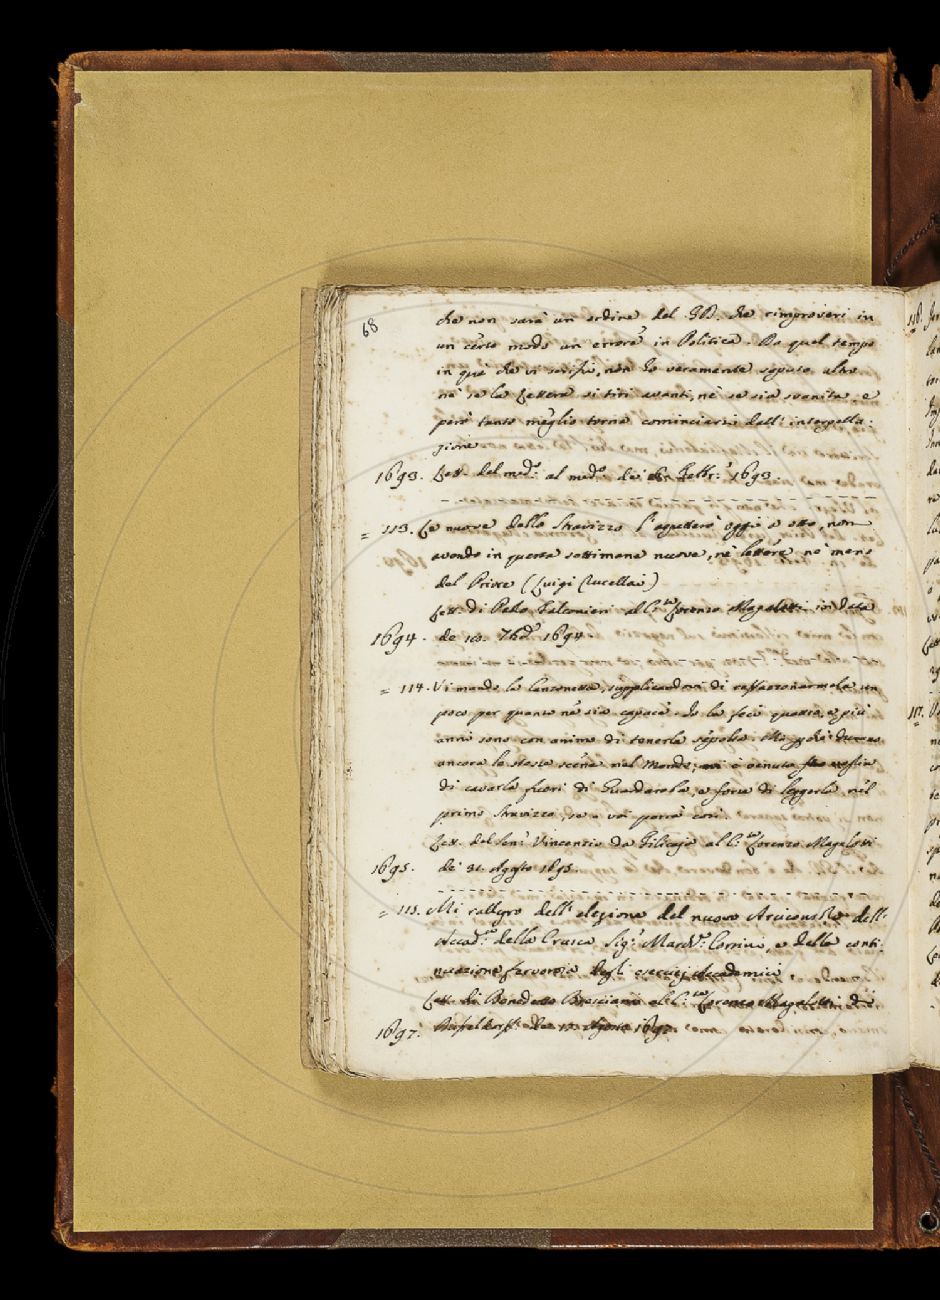 68
che non sarà un ordine del GD. che rimproveri in
un certo modo un errore in Politica. Da quel tempo
in quà che vi scrissi, non ho veramente saputo altro
nè se la Lettera si tiri avanti, nè se sia svanita, e
però tanto meglio torna cominciarsi dall' interpella-
zione
1693. Lett. del med.º al med.º de 1693
= 113. Le nuove dello Stravizzo l'aspetterò oggi a otto, non
avendo in questa settimana nuove, nè lettere nè meno
del Priore (Luigi Rucellai)
Lett. di Paolo Falconieri al C.te Lorenzo Magalotti in data
1694. de 10. 1694.
= 114. Vi mando la Canzonetta, supplicandovi di raffazzonarmela un
poco per quanto nè sia capace. Io la feci quattro, e più
anni sono con animo di tenerla sepolta. Ma durano
ancora le stesse scene nel Mondo, è venuto voglia
di cavarla fuori di Guardaroba, e forse di leggerla nel
primo Stravizzo, se a voi parrà così.
Lett. del Sen.r Vincenzio da Filicaja al C.te Lorenzo Magalotti
1695. de' 31. Agosto 1695.
= 115. Mi rallegro dell' elezione del nuovo Arciconsolo dell'
Accad.ia della Crusca Sig.r March.e Corsini, e della conti-
nuazione fervorosa degli esercizj Accademici
Lett. di Benedetto Bresciani al C.te Lorenzo Magalotti di
1697. de 1697.
116.
117.